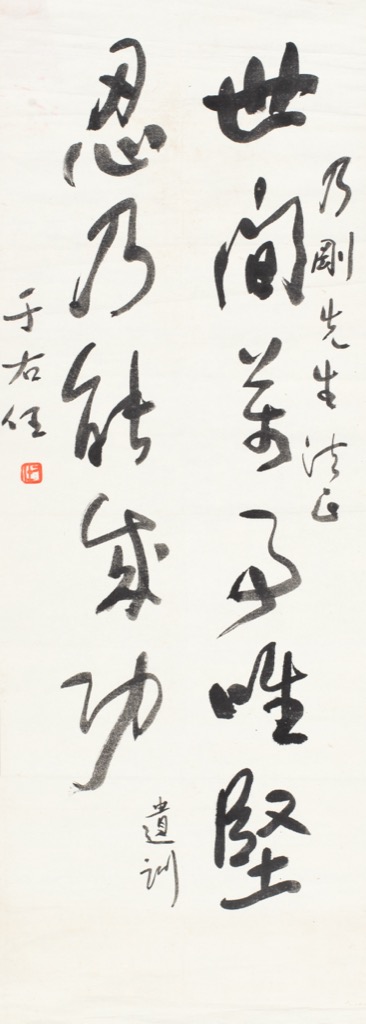 乃剛先生法正
世間萬事唯堅
忍乃能成功
遺訓
于右任